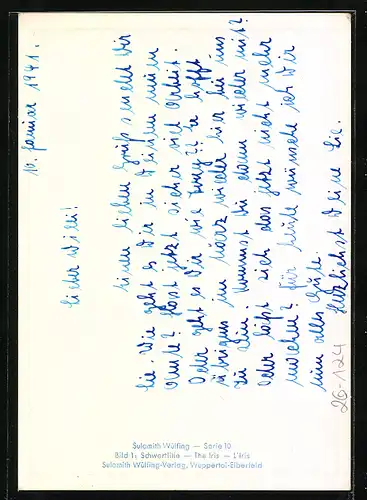 10. Januar 1941.
Lieber Willi!
Einen lieben Gruß sendet Dir
Lie. Wie geht es Dir in Deinem neuen
Amte? Hast jetzt sicher viel Arbeit.
Oder geht es Dir wie
übrigens im März wieder hier bei uns
zu sein. Kommst Du dann wieder mit?
Oder läßt sich das jetzt nicht mehr
machen? Für heute wünsche ich Dir
nun alles Gute.
Herzlichst Deine Lie.
26-124
Sulamith Wülfing — Serie 10
Bild 1: Schwertlilie — The Iris — L'Iris
Sulamith Wülfing-Verlag, Wuppertal-Elberfeld